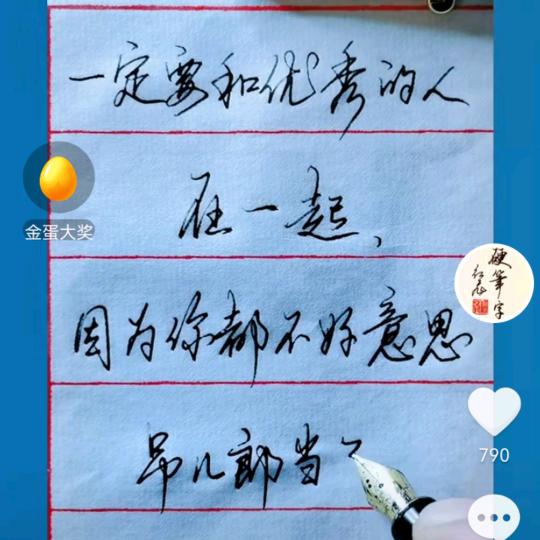 一定要和优秀的人
在一起,
因为你都不好意思
吊儿郎当
金蛋大奖
硬笔字
790